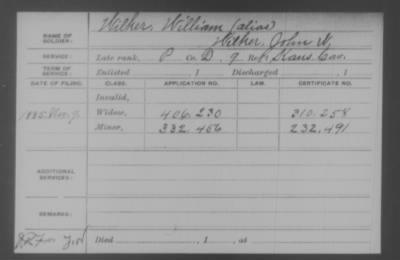 Wilker, William (alias)
NAME OF SOLDIER: Wilker, John W,
SERVICE: Late rank, P Co. D, 9 Reg't Kans. Cav.
TERM OF SERVICE: Enlisted , 1 Discharged , 1
DATE OF FILING. CLASS. APPLICATION NO. LAW. CERTIFICATE NO.
Invalid,
1885 Widow, 406.230 310.258
Minor, 332.456 232.491
ADDITIONAL SERVICES:
REMARKS:
Died , 1 , at